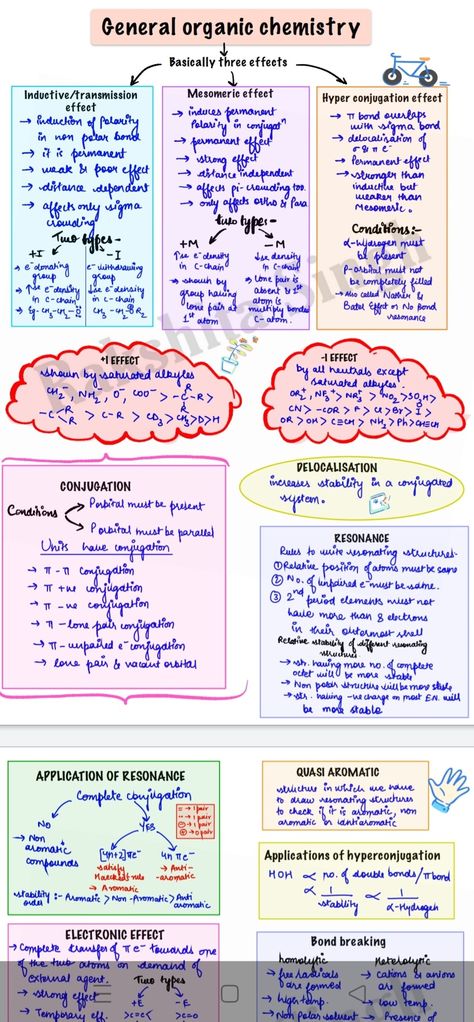 General organic chemistry
Basically three effects
Inductive/transmission
effect
→ Induction of Polarity
in non polar bond
→ it is permanent
→ weak & poor effect
→ distance dependent
→ affects only sigma
crowding
Two types -
+I
-I
→ e⁻donating
group
→ ↑se e⁻density
in c-chain
e⁻withdrawing
group
↓se e⁻density
in c-chain
Mesomeric effect
→ induces permanent
Polarity in conjugatⁿ
→ permanent effect
→ strong effect
→ distance independent
→ affects pi-crowding too.
→ only affects ortho & Para
two type:-
+M
-M
↑se e⁻density
in c-chain
→ shown by
group having
lone pair at
1st atom
↓se density
in c-chain
→ lone pair is
absent & 1st
atom is
multiply bonded
C-atom.
Hyper conjugation effect
→ π bond overlaps
with sigma bond
→ delocalisation of
σ & π e⁻
→ Permanent effect
→ stronger than
inductive but
weaker than
Mesomeric.
Conditions:-
α-Hydrogen must
be present
P-orbital must not
be completely filled
→ Also called Nathan &
Baker Effect or No Bond
resonance
Rakshita Singh
+I EFFECT
shown by saturated alkyles
-I EFFECT
by all neutrals except
saturated alkyles.
CONJUGATION
Conditions
P orbital must be present
P orbital must be parallel
Units have conjugation
→ π - π conjugation
→ π +ve conjugation
→ π -ve conjugation
→ π - lone pair conjugation
→ π - unpaired e⁻ conjugation
→ lone pair & vacant orbital
DELOCALISATION
increases stability in a conjugated
system.
RESONANCE
Rules to write resonating structures-
① Relative position of atoms must be same
② No. of unpaired e⁻ must be same.
③ 2nd period elements must not
have more than 8 electrons
in their outermost shell
Relative stability of different resonating
structures
→ str. having more no. of complete
octet will be more stable
→ Non polar structure will be more stable
→ str. having -ve charge on most E.N. will
be more stable
APPLICATION OF RESONANCE
Complete conjugation
NO
YES
→ Non
aromatic
compounds
[4n+2]πe⁻
→ satisfy
Huckel rule
→ Aromatic
4n πe⁻
→ Anti-
aromatic
stability
order :- Aromatic > Non-Aromatic > Anti
aromatic
QUASI AROMATIC
structure in which we have
to draw resonating structures
to check if it is aromatic, non
aromatic or antiaromatic
Applications of hyperconjugation
HOH ∝ no. of double bonds/π bond
∝ 1/stability ∝ 1/α-Hydrogen
ELECTRONIC EFFECT
→ Complete transfer of πe⁻ towards one
of the two atoms on demand of
external agent.
→ strong effect
→ Temporary eff.
Two types
+E
-E
>c=c<
>c=o
Bond breaking
homolytic
→ free radicals
are formed
→ high temp.
→ Non Polar solvent
Heterolytic
→ cations & anions
are formed
→ low temp.
→ Presence of